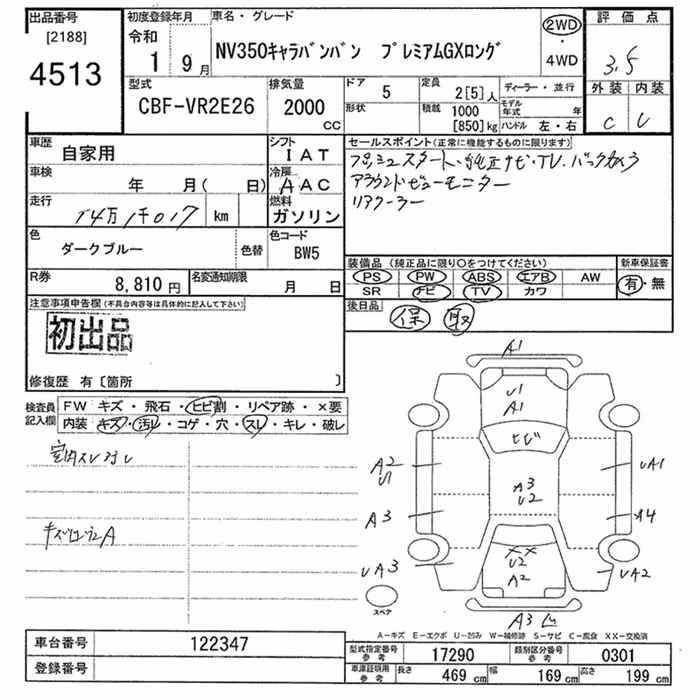 出品番号 初度登録年月 車名・グレード 評価点
[2188] 令和 2WD・4WD
4513 1 9月 NV350キャラバンバン プレミアムGXロング 3.5
型式 排気量 ドア 定員 ディーラー・並行 外装 内装
CBF-VR2E26 2000cc 5 2[5]人 モデル年式 年
形状 積載 1000[850]kg ハンドル 左・右 C
車歴 自家用 シフト IAT セールスポイント(正常に機能するものに限ります)
プッシュスタート・純正ナビ・TV・バックカメラ
アラウンドビューモニター
リアクーラー
車検 年 月( 日) 冷房 AAC
走行 km 燃料 ガソリン
色 ダークブルー 色替 色コード BW5
装備品(純正品に限り○をつけてください) 新車保証書
PS PW ABS エアB AW 有・無
SR ナビ TV カワ
R券 8,810円 名変通知期限 月 日
後日品 保 取
注意事項申告欄(不具合内容等は具体的に記入して下さい)
初出品
修復歴 有〔箇所 〕
検査員記入欄 FW キズ・飛石・ヒビ割・リペア跡・×要
内装 キズ・汚レ・コゲ・穴・スレ・キレ・破レ
A1
U1
A1
ヒビ
A2
U1
UA1
A3
U2
A3
A4
XX
U2
A2
UA3
UA2
スペア
A3
A-キズ E-エクボ U-凹み W-補修跡 S-サビ C-腐食 XX-交換済
車台番号 122347
登録番号
型式指定番号 参考 17290 類別区分番号 参考 0301
車庫証明用 参考 長さ 469cm 幅 169cm 高さ 199cm